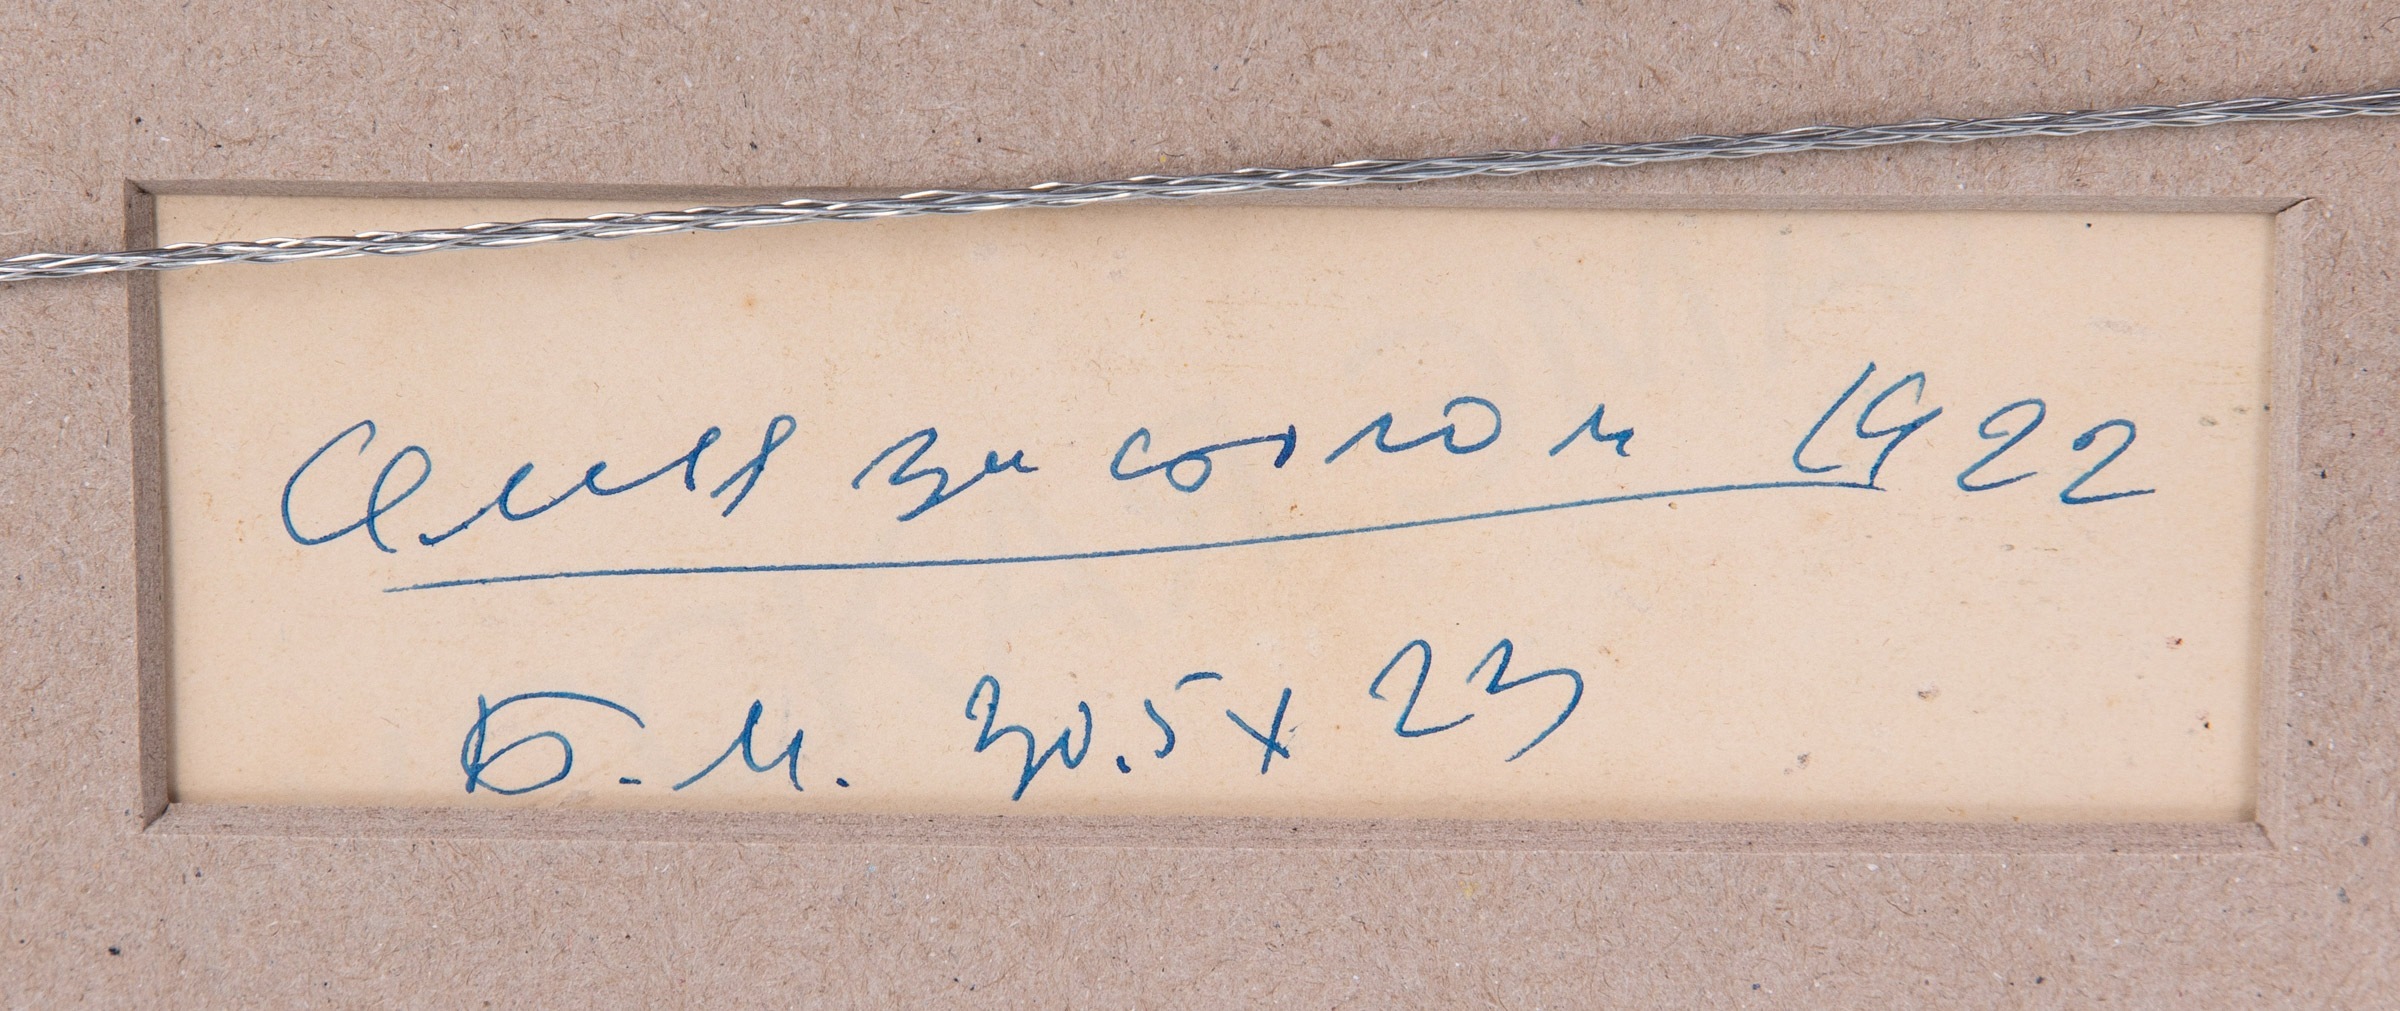 Семья за столом 1922
Б. м. 30.5 x 23